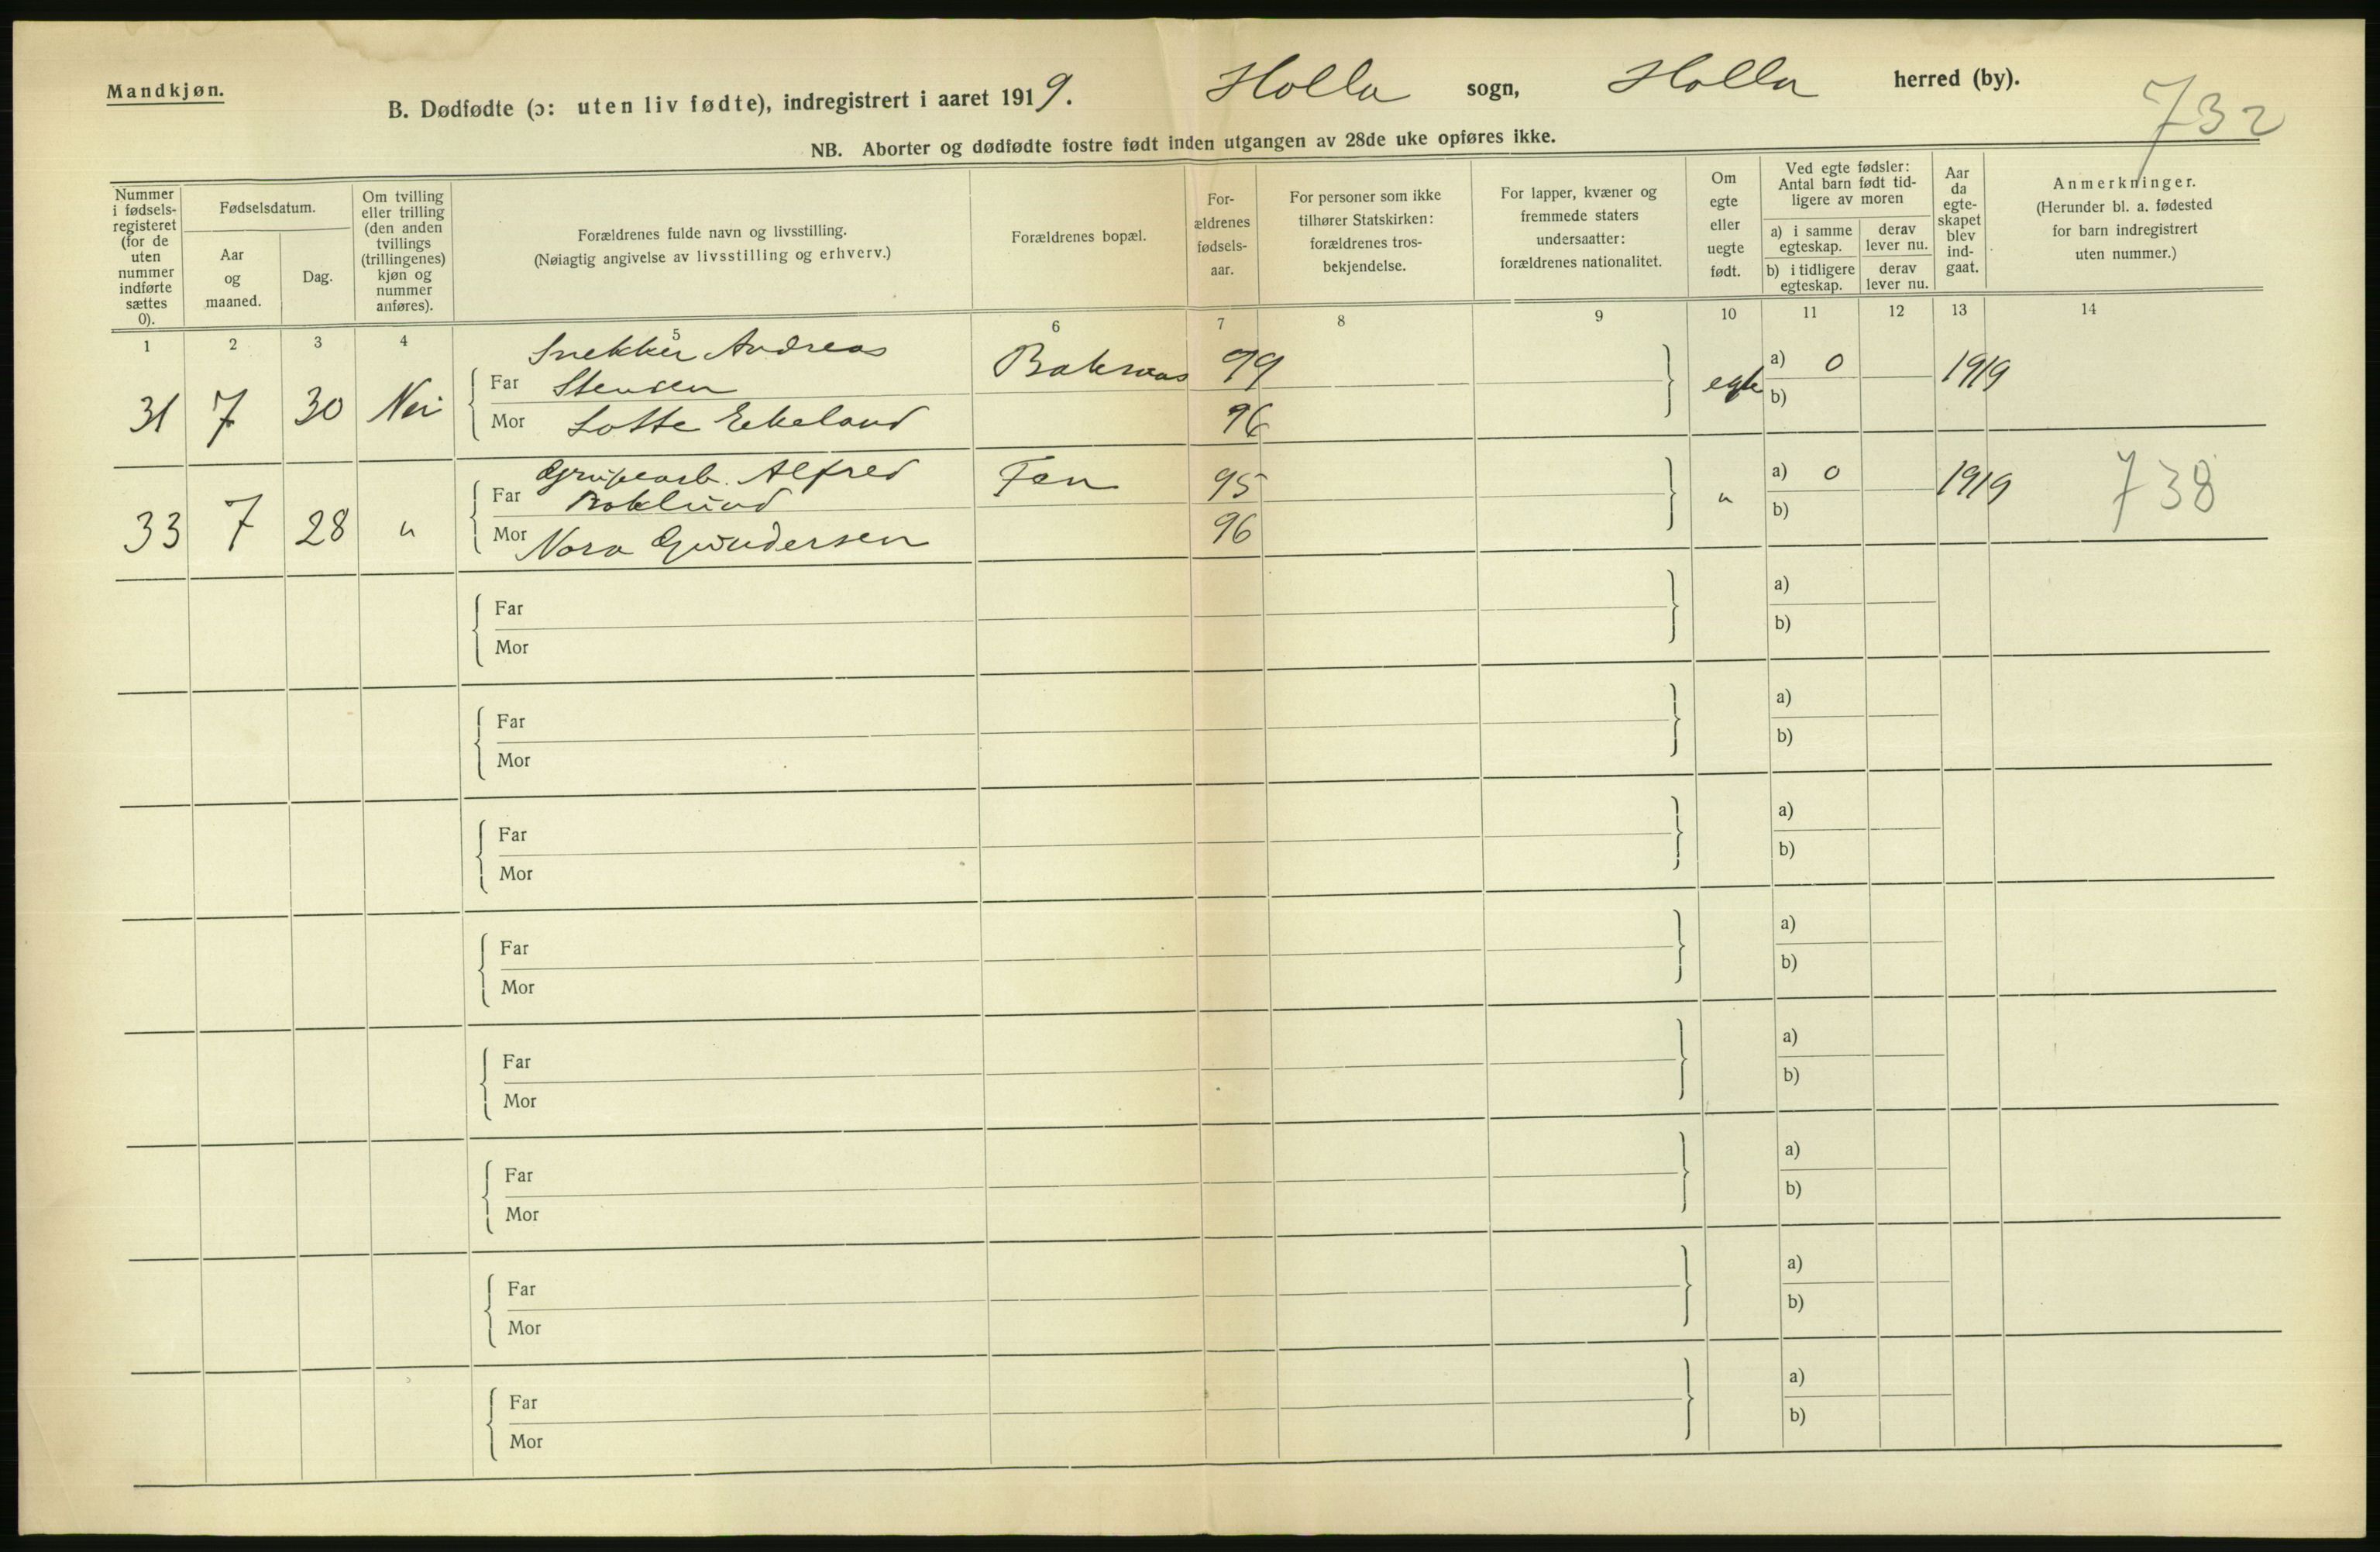 Mandkjøn.
B. Dødfødte (ɔ: uten liv fødte), indregistrert i aaret 1919. Holla sogn, Holla herred (by).
732
NB. Aborter og dødfødte fostre født inden utgangen av 28de uke opføres ikke.
Nummer i fødsels-registeret (for de uten nummer indførte sættes 0).
Fødselsdatum.
Aar og maaned.
Dag.
Om tvilling eller trilling (den anden tvillings (trillingenes) kjøn og nummer anføres).
Forældrenes fulde navn og livsstilling.
(Nøiagtig angivelse av livsstilling og erhverv.)
Forældrenes bopæl.
For-ældrenes fødsels-aar.
For personer som ikke tilhører Statskirken: forældrenes tros-bekjendelse.
For lapper, kvæner og fremmede staters undersaatter: forældrenes nationalitet.
Om egte eller uegte født.
Ved egte fødsler: Antal barn født tid-ligere av moren
a) i samme egteskap.
derav lever nu.
b) i tidligere egteskap.
derav lever nu.
Aar da egte-skapet blev ind-gaat.
Anmerkninger.
(Herunder bl. a. fødested for barn indregistrert uten nummer.)
1 2 3 4 5 6 7 8 9 10 11 12 13 14
Snekker Andreas
31 7 30 Nei Far Stensen 99 egte a) 0 1919
Mor Lotte Ekeland 96 b)
Grubearb. Alfred
33 7 28 " Far Boklund Fen 95 " a) 0 1919 738
Mor Nora Gundersen 96 b)
Far a)
Mor b)
Far a)
Mor b)
Far a)
Mor b)
Far a)
Mor b)
Far a)
Mor b)
Far a)
Mor b)
Far a)
Mor b)
Far a)
Mor b)